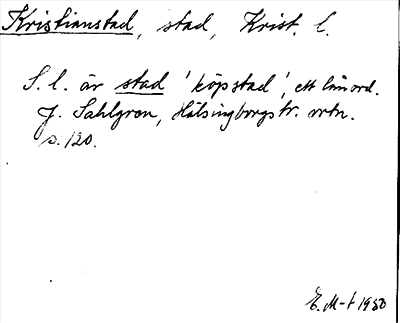 Kristianstad, stad, Krist. l.
S. l. är stad 'köpstad', ett lånord.
J. Sahlgren, Hälsingborgstr. ortn.
s. 120.
E. M-t 1950